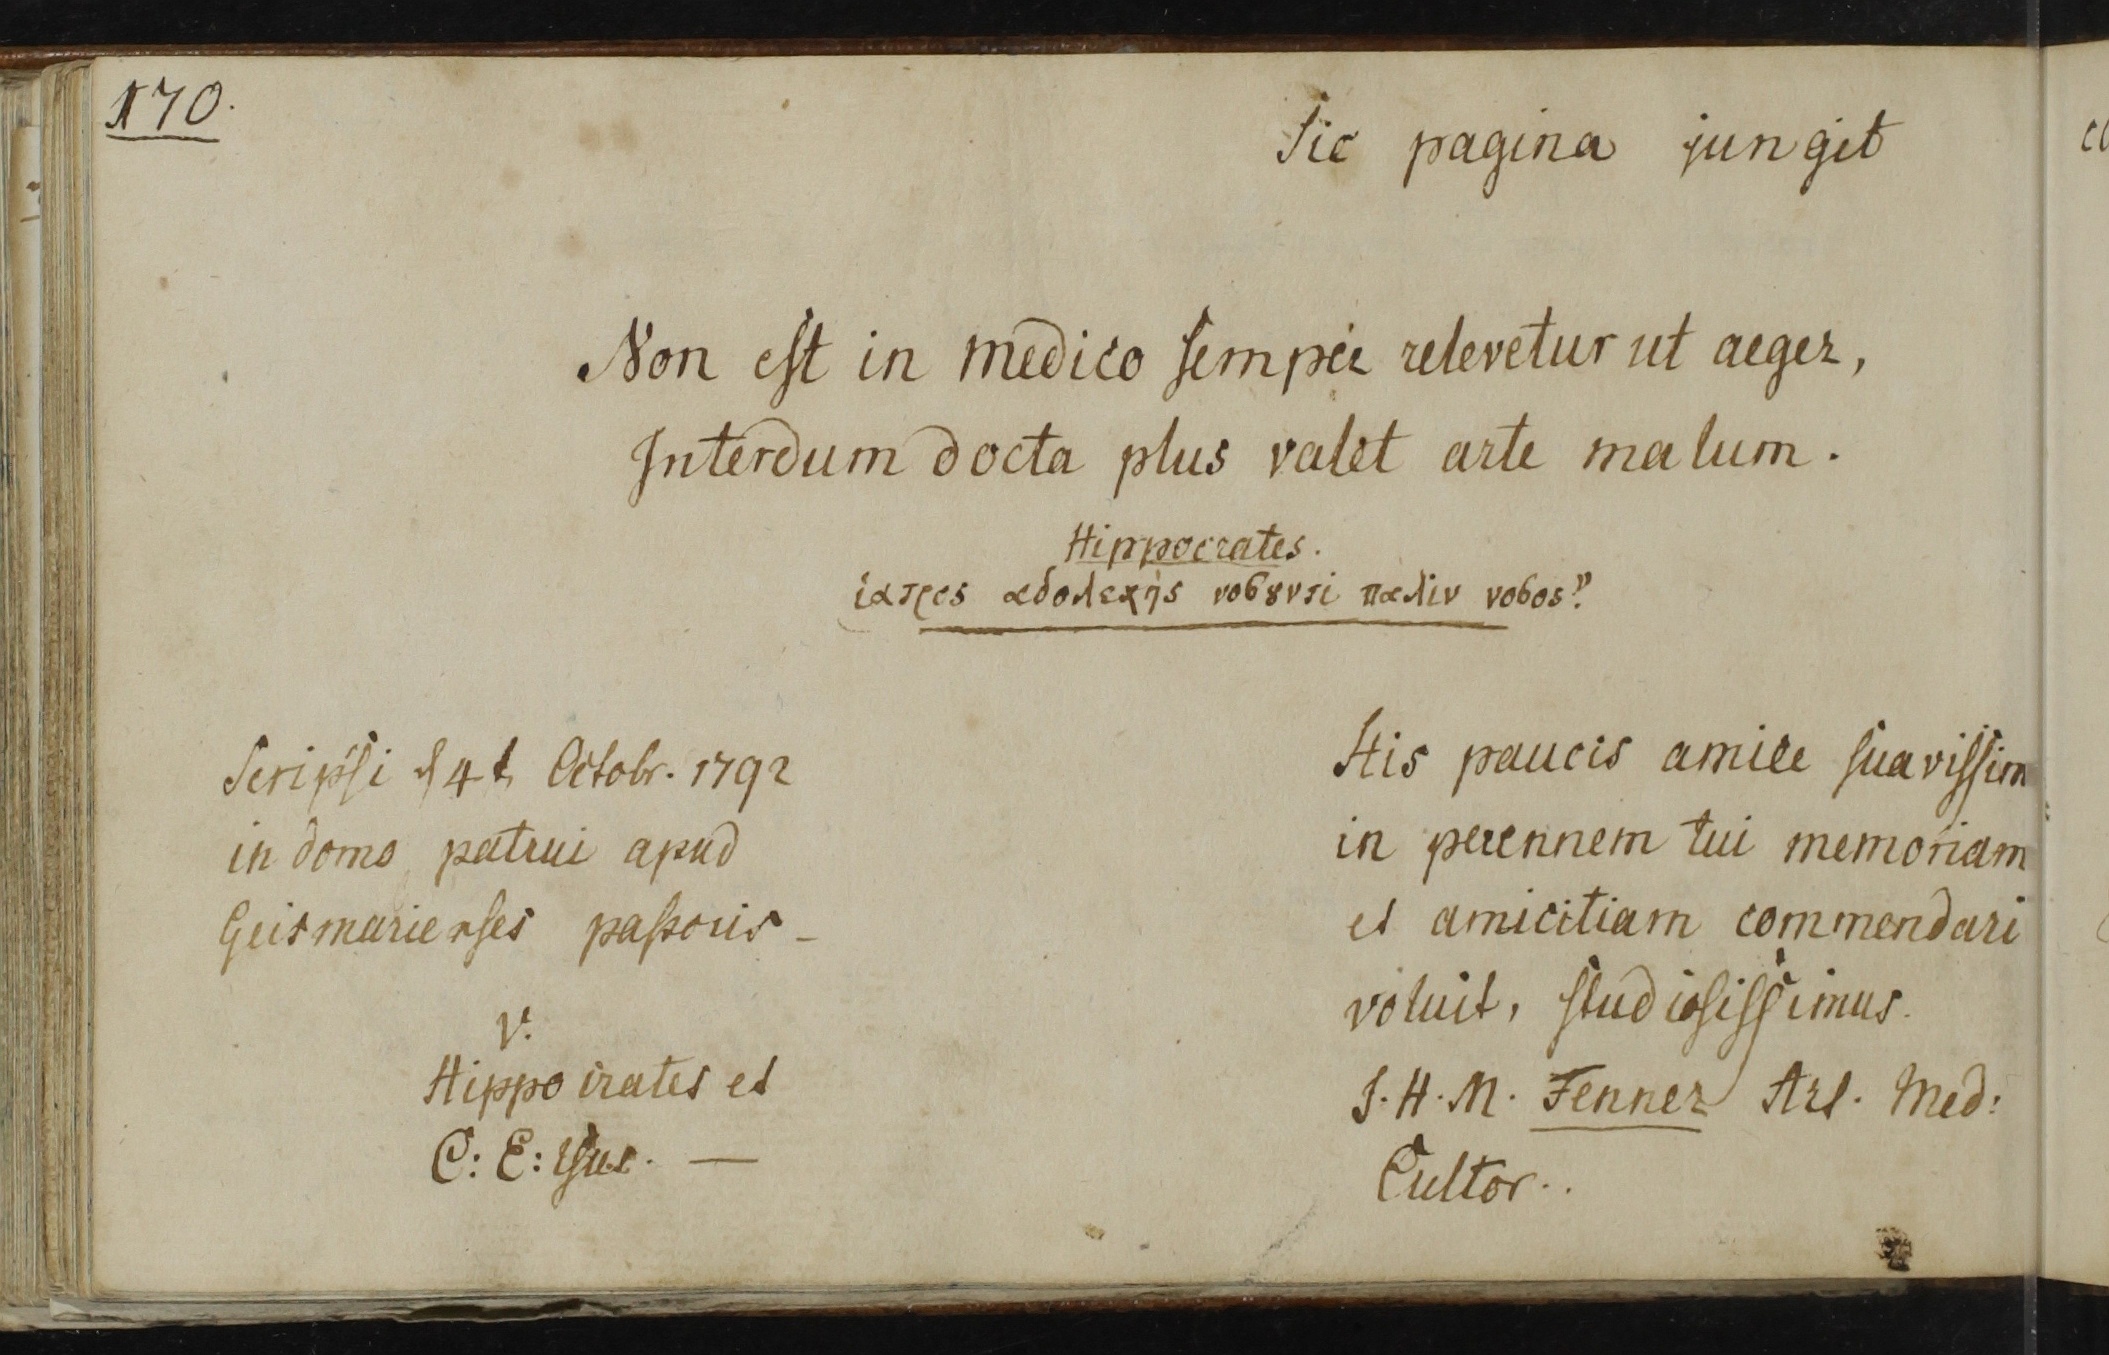 170.
Sic pagina jungit
Non est in medico semper relevetur ut aeger,
Interdum docta plus valet arte malum.
Hippocrates.
ἰατρος αδολεχὴς νοσουντι παλιν νοσος"
Scripsi 4 Octobr. 1792
in domo patrui apud
Geismarienses pastoris –
V.
Hippocrates et
C: E: —
His paucis amice suavissim
in perennem tui memoriam
et amicitiam commendari
voluit, studiosissimus.
J. H. M. Fenner Art. Med:
Cultor..